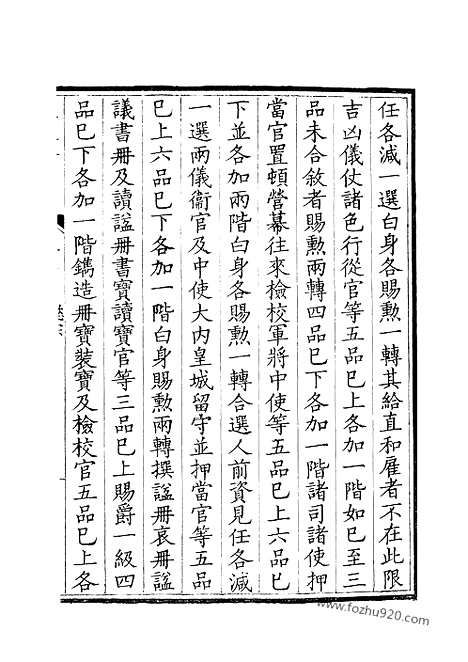 任各減一選白身各賜勲一轉其給直和雇者不在此限
吉凶儀仗諸色行從官等五品巳上各加一階如巳至三
品未合敘者賜勲兩轉四品巳下各加一階諸司諸使押
當官置頓營幕往來檢校軍將中使等五品巳上六品巳
下並各加兩階白身各賜勲一轉合選人前資見任各減
一選兩儀衞官及中使大内皇城留守並押當官等五品
巳上六品巳下各加一階白身賜勲兩轉撰謚冊哀冊謚
議書冊及讀謚冊書寶讀寶官等三品巳上賜爵一級四
品巳下各加一階鐫造冊寶裝寶及檢校官五品巳上各
www.fozhu920.com